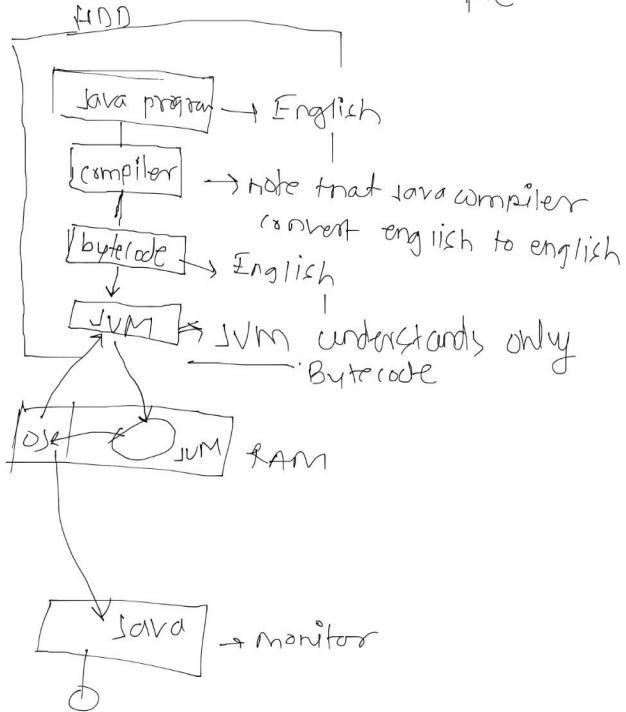 HDD
Java program → English
compiler → note that java compiler
convert english to english
bytecode → English
JVM → JVM understands only
Bytecode
JVM
RAM
Java → monitor